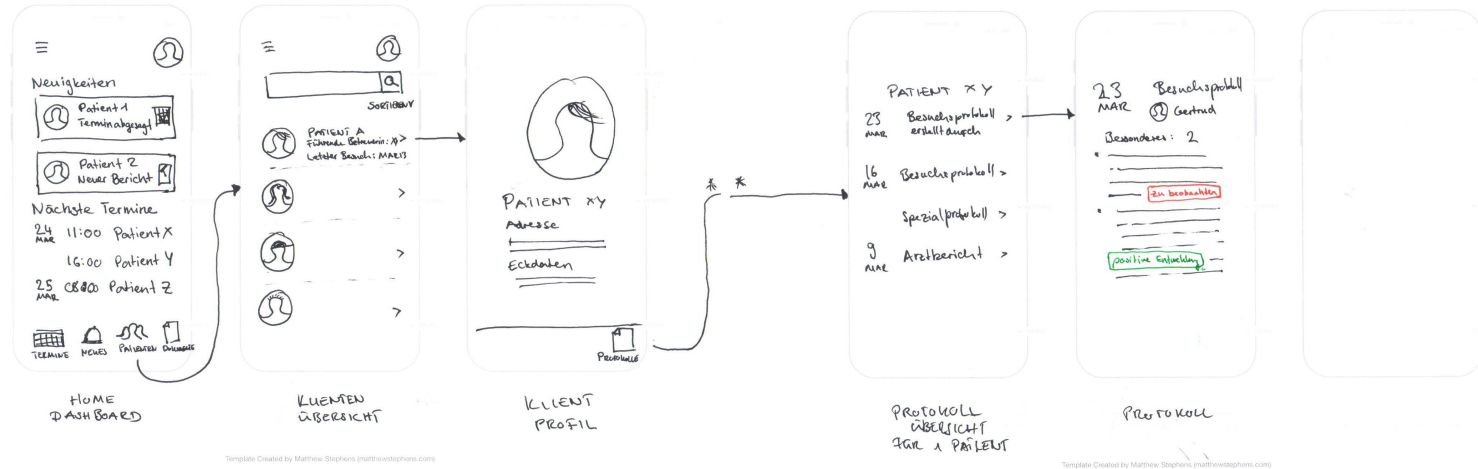 Neuigkeiten
Patient 1
Terminabgesagt
Patient 2
Neuer Bericht
Nächste Termine
24 MAR 11:00 Patient X
16:00 Patient Y
25 MAR Patient Z
TERMINE NEUES PATIENTEN
HOME
DASHBOARD
SORTIEREN
PATIENT A
Führende Betreuerin: xy >
Letzter Besuch: MARZ13
>
>
>
KLIENTEN
ÜBERSICHT
PATIENT XY
Adresse
Eckdaten
PROTOKOLLE
KLIENT
PROFIL
* *
PATIENT XY
23 MAR Besuchsprotokoll >
erstellt durch
16 MAR Besuchsprotokoll >
Spezialprotokoll >
9 MAR Arztbericht >
PROTOKOLL
ÜBERSICHT
FÜR 1 PATIENT
23 MAR Besuchsprotokoll
Gertrud
Besonderes: 2
zu beobachten
positive Entwicklung
PROTOKOLL
Template Created by Matthew Stephens (matthewstephens.com)
Template Created by Matthew Stephens (matthewstephens.com)